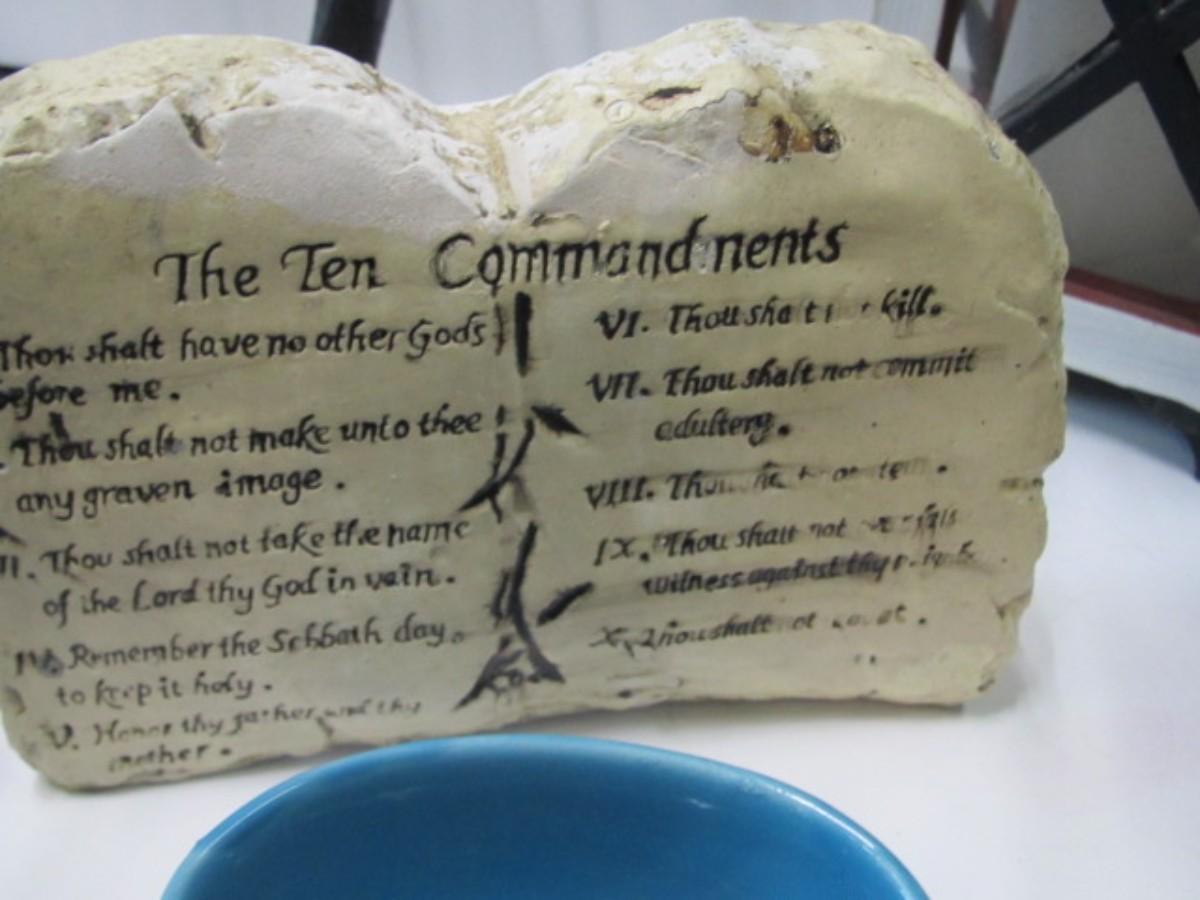 The Ten Commandments
Thou shalt have no other Gods
before me.
Thou shalt not make unto thee
any graven image.
II. Thou shalt not take the name
of the Lord thy God in vain.
IV. Remember the Sabbath day.
to keep it holy.
V. Honor thy father and thy
mother.
VI. Thou shalt kill.
VII. Thou shalt not commit
adultery.
VIII. Thou
IX. Thou shalt not
witness against thy
X. Thou shalt